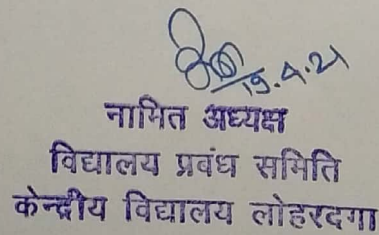 19.4.21
नामित अध्यक्ष
विद्यालय प्रवंध समिति
केन्द्रीय विद्यालय लोहरदगा